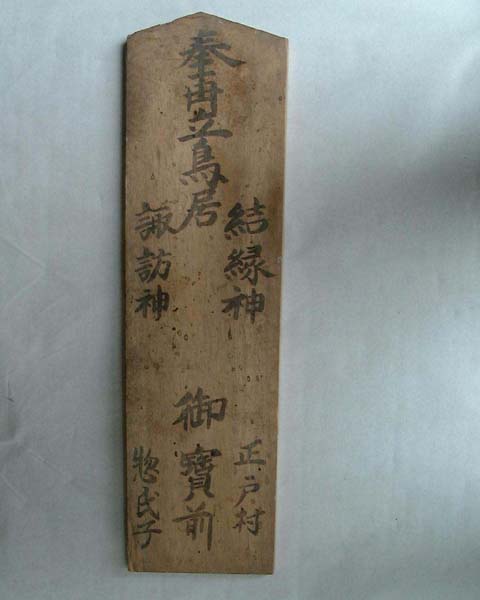 奉再立鳥居
結縁神
諏訪神
御寳前
正戸村
惣氏子